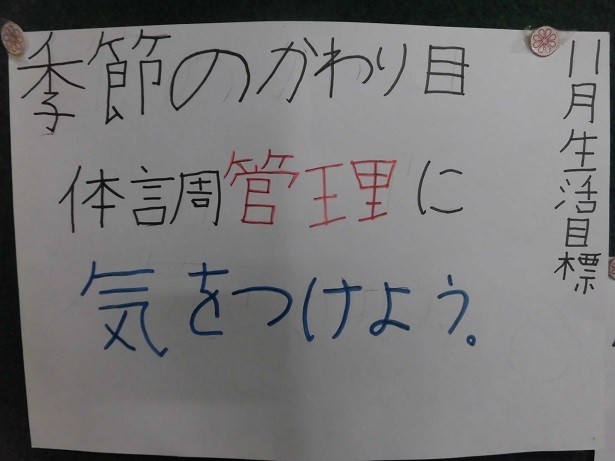 11月生活目標
季節のかわり目
体調管理に
気をつけよう。